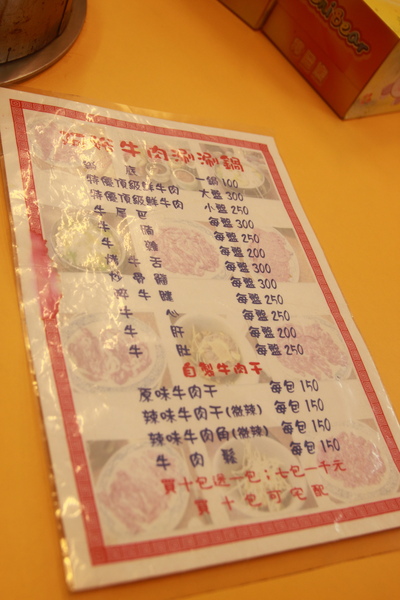 牛肉涮涮鍋
鍋底 一鍋100
特優頂級鮮牛肉 大盤300
特優頂級鮮牛肉 小盤250
牛尾巴 每盤250
牛腩 每盤250
牛雜 每盤300
牛舌 每盤300
炒骨髓 每盤300
牛腱 每盤250
牛心 每盤250
牛肝 每盤200
牛肚 每盤250
自製牛肉干
原味牛肉干 每包150
辣味牛肉干(微辣) 每包150
辣味牛肉角(微辣) 每包150
牛肉鬆 每包150
買十包送一包;七包一千元
買十包可宅配